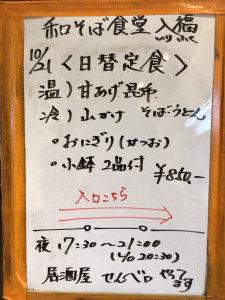 和そば食堂 入福
いりふく
10/21 〈日替定食〉
温）甘あげ昆布
冷）山かけ そば、うどん
。おにぎり(かつお)
。小鉢 2品付
￥850.-
入口こちら
夜 17:30～21:00
(L/O 20:30)
居酒屋 せんベロ やってます